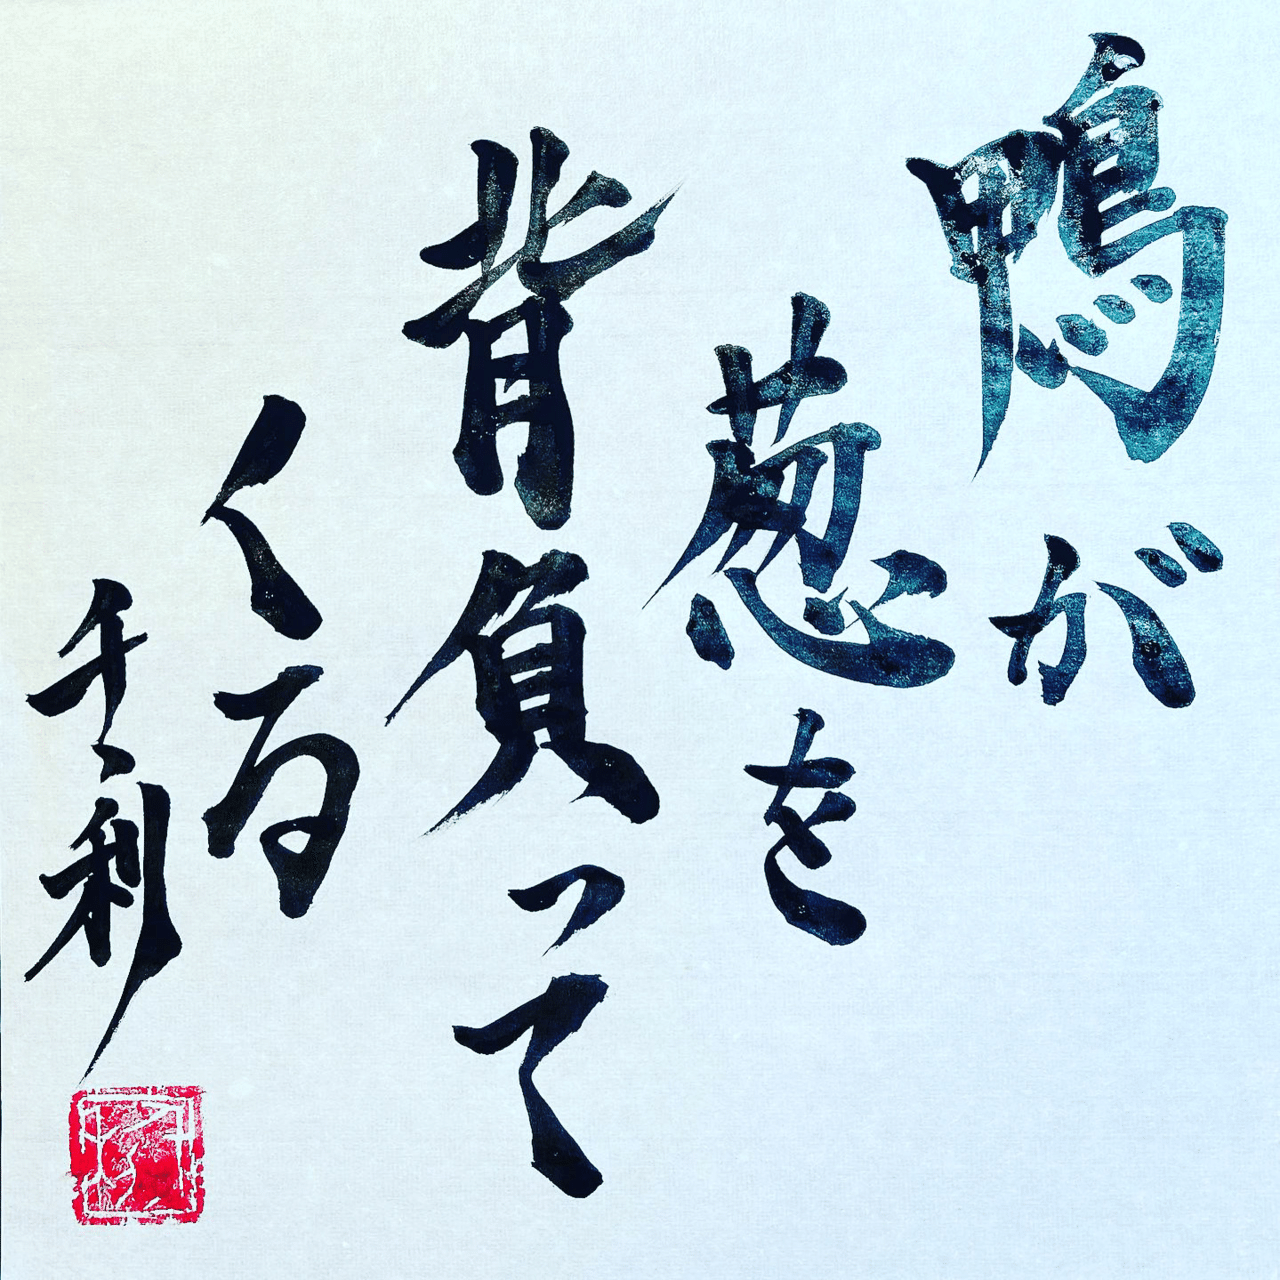 鴨が
葱を
背負って
くる
千利